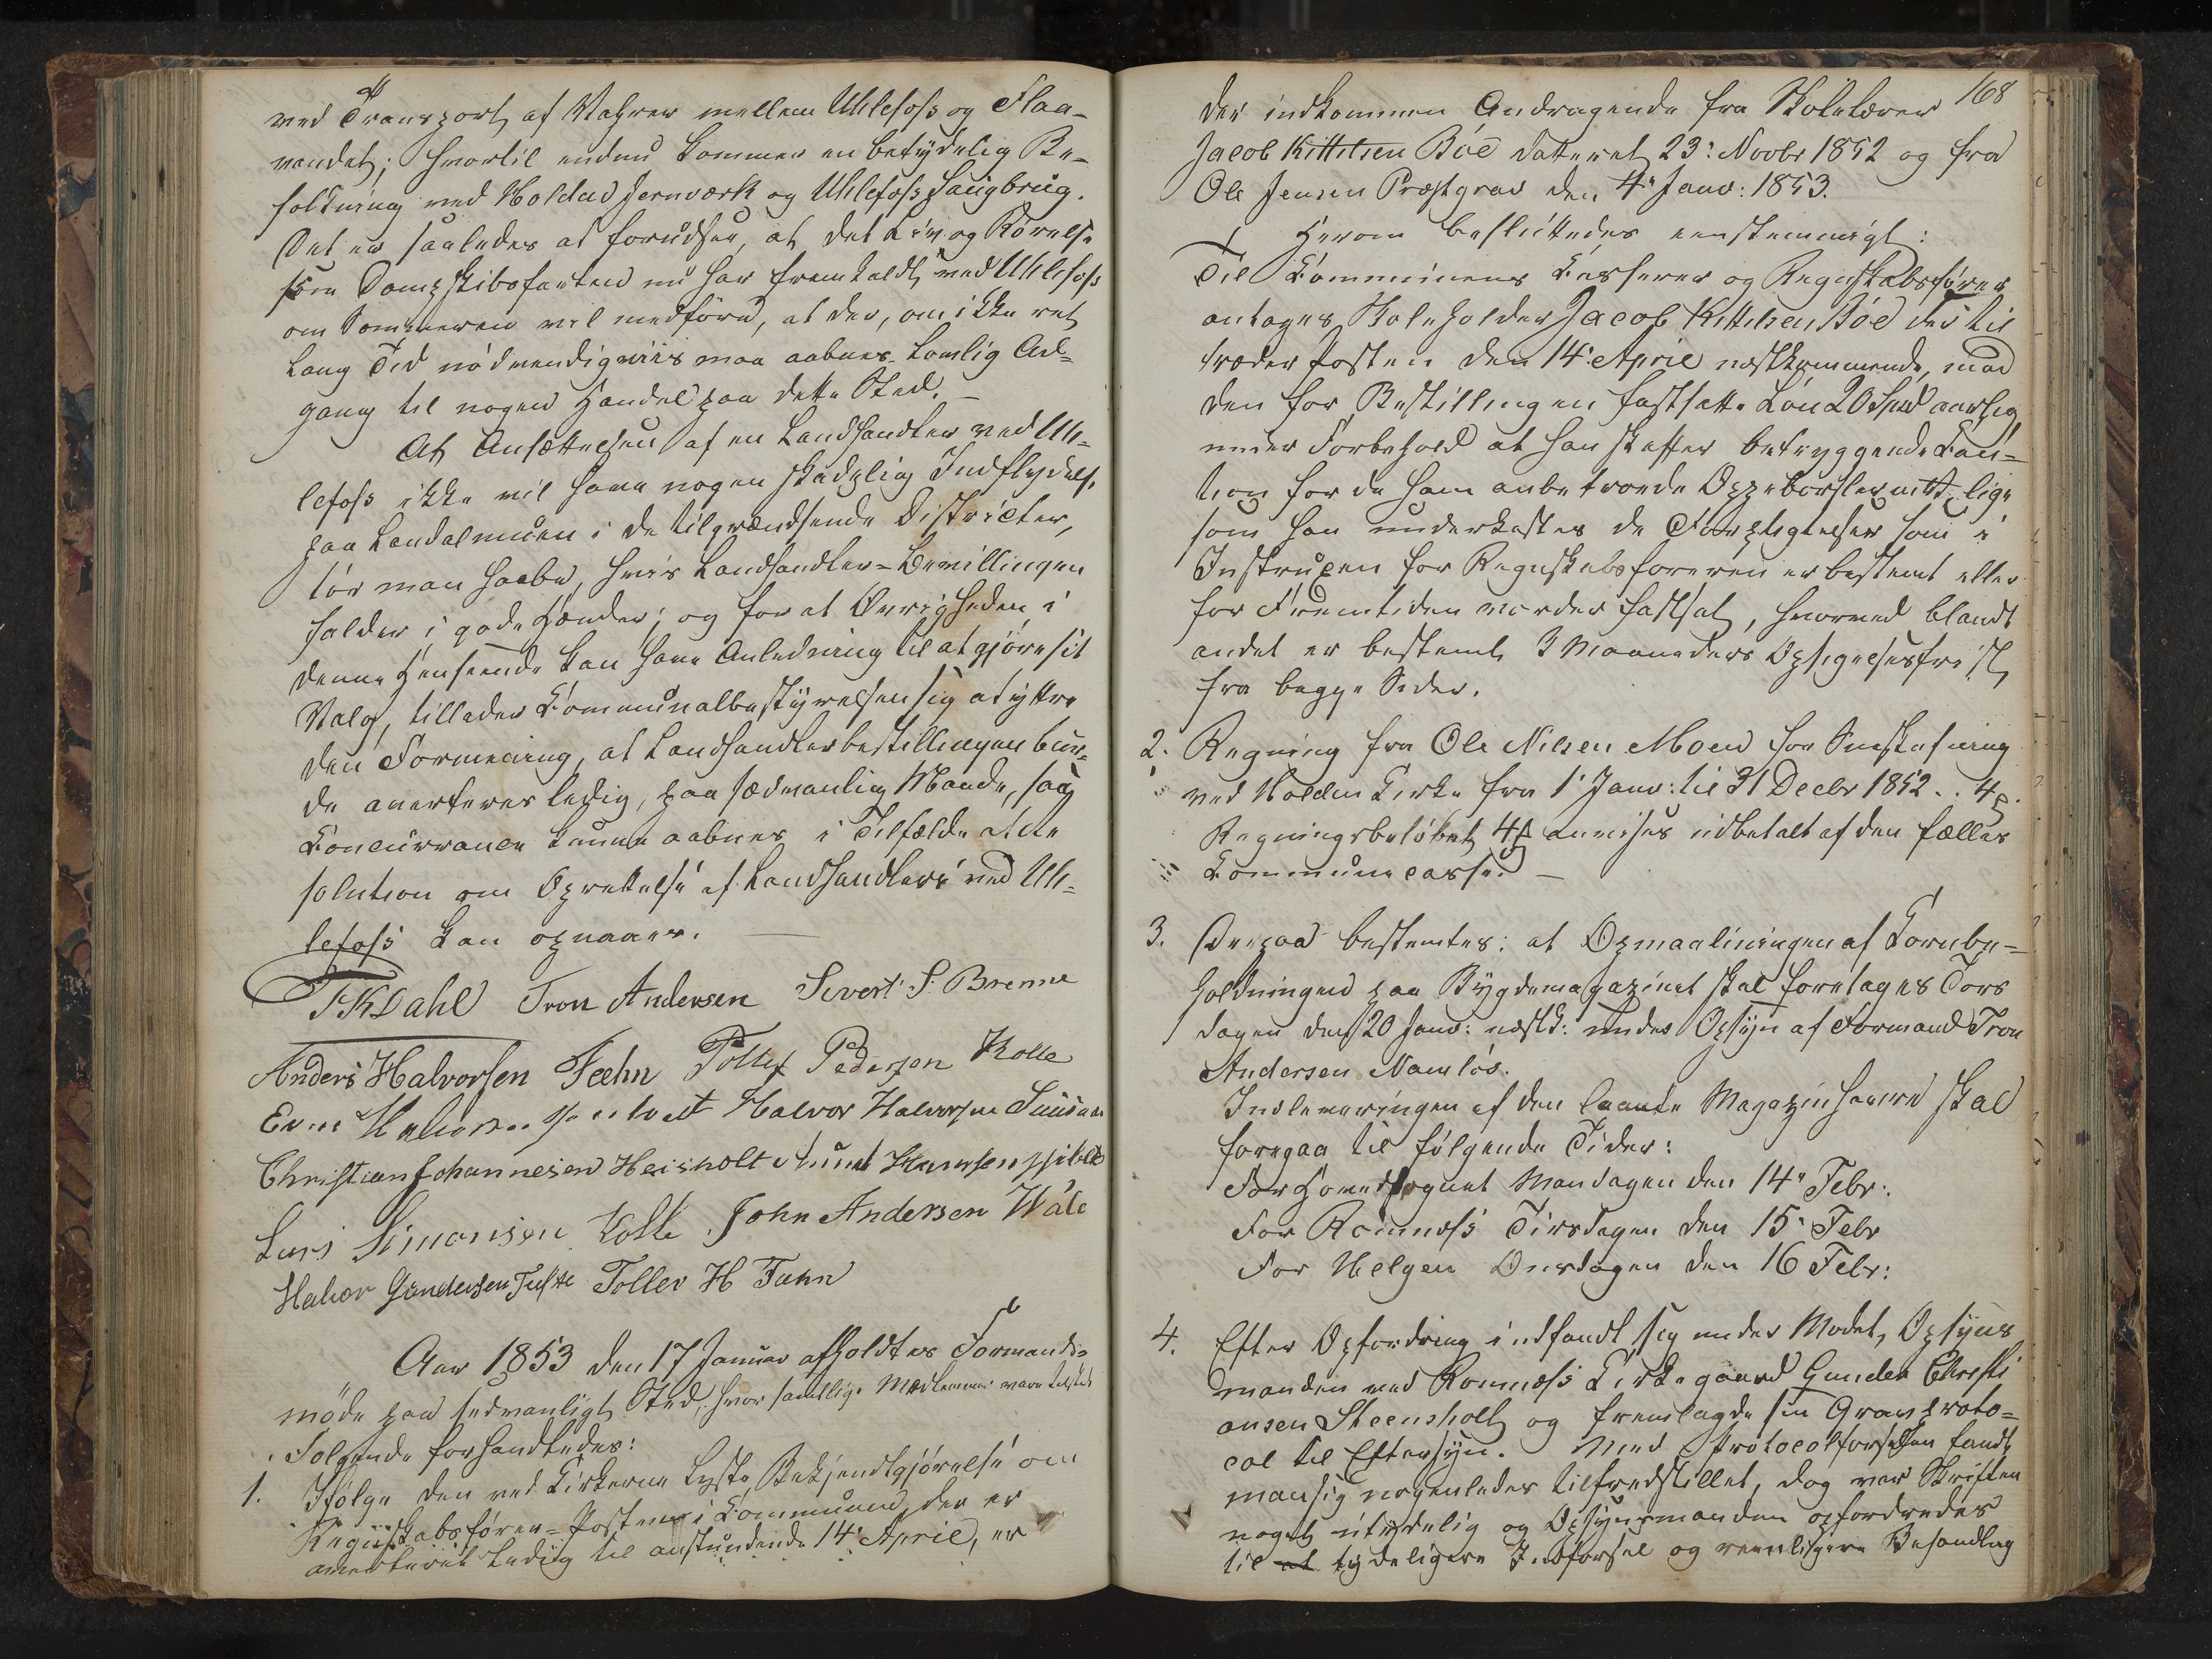 ved Transport af Vahrer mellem Uhlefoss og Flaa-
vandet; hvortil endnu kommer en betydelig Be-
folkning ved Holden Jernværk og Uhlefoss Saugbrug.
Det er saaledes at forudsee, at det Liv og Rörelse
som Dampskibsfarten nu har fremkaldt ved Uhlefoss
om Sommeren vil medföre, at der, om ikke ret
lang Tid nödvendigviis maa aabnes lovlig Ad-
gang til nogen Handel paa dette Sted. –
At Ansættelsen af en Landhandler ved Uh-
lefoss ikke vil have nogen skadelig Indflydelse
paa Landalmuen i de tilgrændsende Districter,
tör man haabe, hvis Landhandler-Bevillingen
falder i gode Hænder; og for at Övrigheden i
denne Henseende kan have Anledning til at gjöre sit
Valg, tillader Communalbestyrelsen sig at yttre
den Formening, at Landhandlerbestillingen bur-
de averteres ledig, paa sædvanlig Maade, saa
Concurrance kunne aabnes i Tilfælde at Re
solution om Oprettelse af Landhandleri ved Uh-
lefoss kan opnaaes. —
TKDahl Tron Andersen Sivert S. Brenne
Anders Halvorsen Feehn Tollef Pedersen Kolle
Halvor Halvorsen
Christian Johannesen Heisholt Amund Hansen
Lars Simonsen Kolle John Andersen Wale
Halvor Gundersen Tufte Tollev H Fæhn
Aar 1853 den 17 Januar afholdtes Formands-
möde paa sedvanligt Sted, hvor samtlige Medlemmer vare tilstede
Folgende forhandledes:
1. Ifölge den ved Kirkerne lyste Bekjendtgjörelse om
Regnskabsförer-Posten i Communen, der er
averteret ledig til anstundende 14 April, er
168
der indkommen Andragende fra Skolelærer
Jacob Kittilsen Böe datteret 23: Novbr 1852 og fra
Ole Jensen Præstgrav den 4 Janv: 1853.
Herom besluttedes eenstemmigt:
Til Communens Casserer og Regnskabsförer
antages Skoleholder Jacob Kittilsen Böe der til
træder Posten den 14 April næstkommende, mod
den for Bestillingen fastsatte Lön 20 Spd aarlig
under Forbehold at han skaffer betryggende Cau-
tion for de ham anbetroede Oppebörsler lige
som han underkastes de Forpligtelser som i
Instruxen for Regnskabsföreren er bestemt eller
for Fremtiden vorder fastsat, hvorved blandt
andet er bestemt 3 Maaneders Opsigelsesfrist
fra begge Sider.
2. Regning fra Ole Nilsen Moen for Sneskufning
ved Holden Kirke fra 1 Janv: til 31 Decbr 1852 . . 4
Regningsbelöbet 4 anvises udbetalt af den fælles
Communecasse. —
3. Derpaa bestemtes: at Opmaalningen af Kornbe-
holdningen paa Bygdemagazinet skal foretages Tors
dagen den 20 Janv: næstk: under Opsyn af Formand Tron
Andersen Namlös.
Indleveringen af den laante Magazinhavre skal
foregaa til fölgende Tider:
For Hovedsognet Mandagen den 14 Febr:
For Romnæs Tirsdagen den 15 Febr
For Helgen Onsdagen den 16 Febr:
4. Efter Opfordring indfandt sig under Modet, Opsyns
manden ved Romnæs Kirkegaard Gunder Christi
ansen Steensholt og fremlagde sin Gravproto-
col til Eftersyn. Med Protocolforselen fandt
man sig nogenledes tilfredstillet, dog var Skriften
noget utydelig og Opsynsmanden opfordredes
til at tydeligere Indforsel og reenligere Behandling